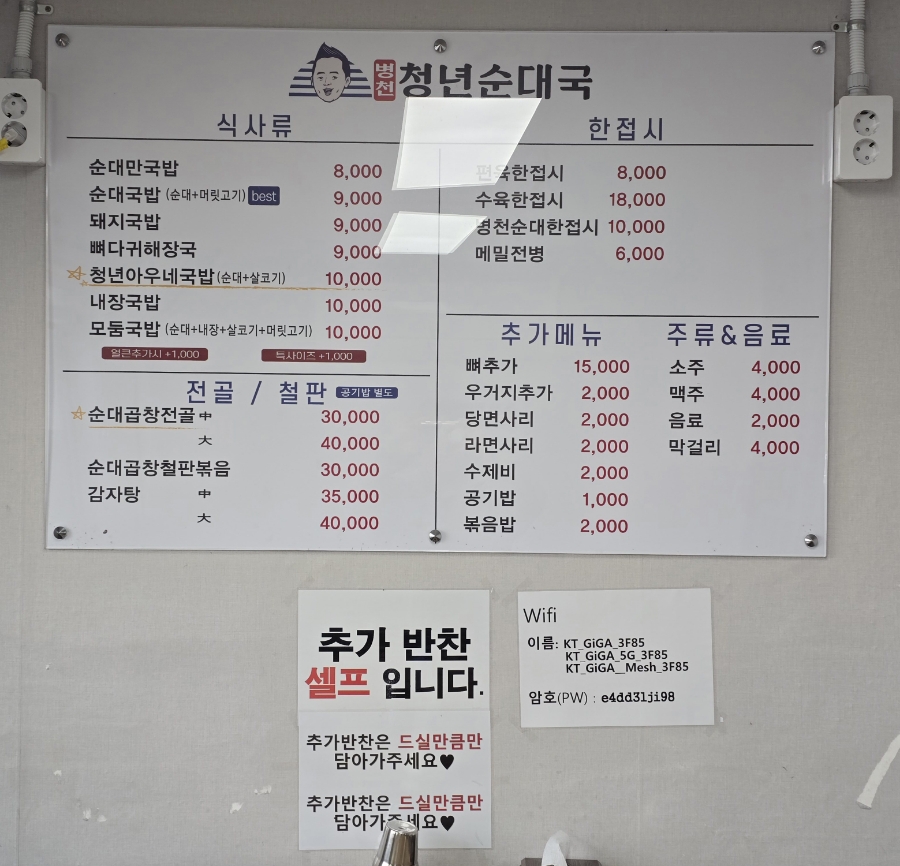 병천 청년순대국
식사류
순대만국밥 8,000
순대국밥 (순대+머릿고기) best 9,000
돼지국밥 9,000
뼈다귀해장국 9,000
청년아우네국밥 (순대+살코기) 10,000
내장국밥 10,000
모둠국밥 (순대+내장+살코기+머릿고기) 10,000
얼큰추가시 +1,000 특사이즈 +1,000
전골 / 철판 공기밥 별도
순대곱창전골 中 30,000
大 40,000
순대곱창철판볶음 30,000
감자탕 中 35,000
大 40,000
한접시
편육한접시 8,000
수육한접시 18,000
병천순대한접시 10,000
메밀전병 6,000
추가메뉴
뼈추가 15,000
우거지추가 2,000
당면사리 2,000
라면사리 2,000
수제비 2,000
공기밥 1,000
볶음밥 2,000
주류&음료
소주 4,000
맥주 4,000
음료 2,000
막걸리 4,000
추가 반찬
셀프 입니다.
추가반찬은 드실만큼만
담아가주세요♥
추가반찬은 드실만큼만
담아가주세요♥
Wifi
이름: KT_GiGA_3F85
KT_GiGA_5G_3F85
KT_GiGA__Mesh_3F85
암호(PW) : e4dd3lji98